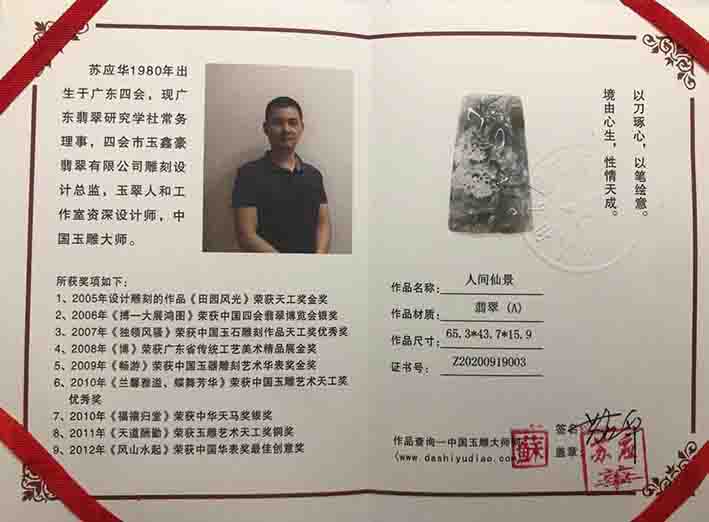 苏应华1980年出
生于广东四会，现广
东翡翠研究学社常务
理事，四会市玉鑫豪
翡翠有限公司雕刻设
计总监，玉翠人和工
作室资深设计师，中
国玉雕大师。
所获奖项如下：
1、2005年设计雕刻的作品《田园风光》荣获天工奖金奖
2、2006年《搏一大展鸿图》荣获中国四会翡翠博览会银奖
3、2007年《独领风骚》荣获中国玉石雕刻作品天工奖优秀奖
4、2008年《博》荣获广东省传统工艺美术精品展金奖
5、2009年《畅游》荣获中国玉器雕刻艺术华表奖金奖
6、2010年《兰馨雅溢、蝶舞芳华》荣获中国玉雕艺术天工奖
优秀奖
7、2010年《福禧归堂》荣获中华天马奖银奖
8、2011年《天道酬勤》荣获玉雕艺术天工奖铜奖
9、2012年《风山水起》荣获中国华表奖最佳创意奖
以刀琢心，以笔绘意。
境由心生，性情天成。
作品名称：人间仙景
作品材质：翡翠（A）
作品尺寸：65.3*43.7*15.9
证书号：Z20200919003
签名：
盖章：
作品查询—中国玉雕大师
（www.dashiyudiao.com）
蘇
苏应